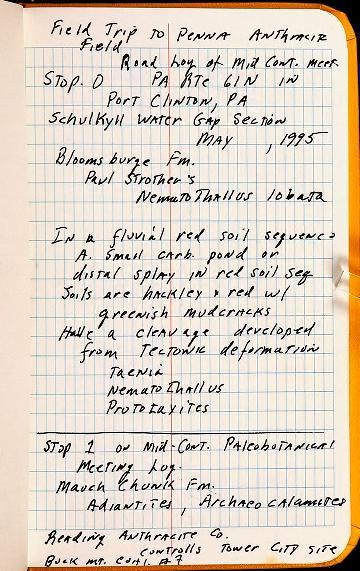 Field Trip to Penna Anthracite
Field
Road Log of Mid Cont. meet.
Stop. 0 PA Rte 61N in
Port Clinton, PA
Schulkyll Water Gap Section
May , 1995
Bloomsburge Fm.
Paul Strother's
Nematothallus lobata
In a fluvial red soil sequence
A. small carb. pond or
distal splay in red soil seq
Soils are hackley & red w/
greenish mudcracks
Have a cleavage developed
from Tectonic deformation
Taenia
Nematothallus
Prototaxites
Stop 1 on Mid-Cont. Paleobotanical
Meeting Log.
Mauch Chunk Fm.
Adiantites, Archaeocalamites
Reading Anthracite Co.
controls Tower City site
Buck Mt. Coal. #7